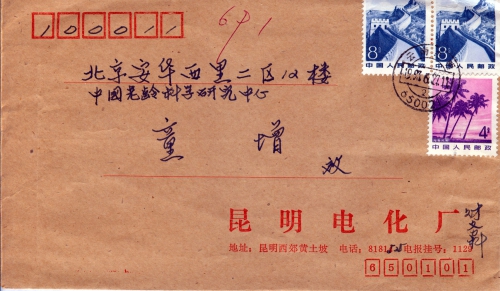 100011
671
8分
8分
中国人民邮政
中国人民邮政
北京安华西里二区12楼
中国老龄科学研究中心
4分
中国人民邮政
童增
收
昆明电化厂
地址:昆明西郊黄土坡 电话:8181 电报挂号:1129
650101